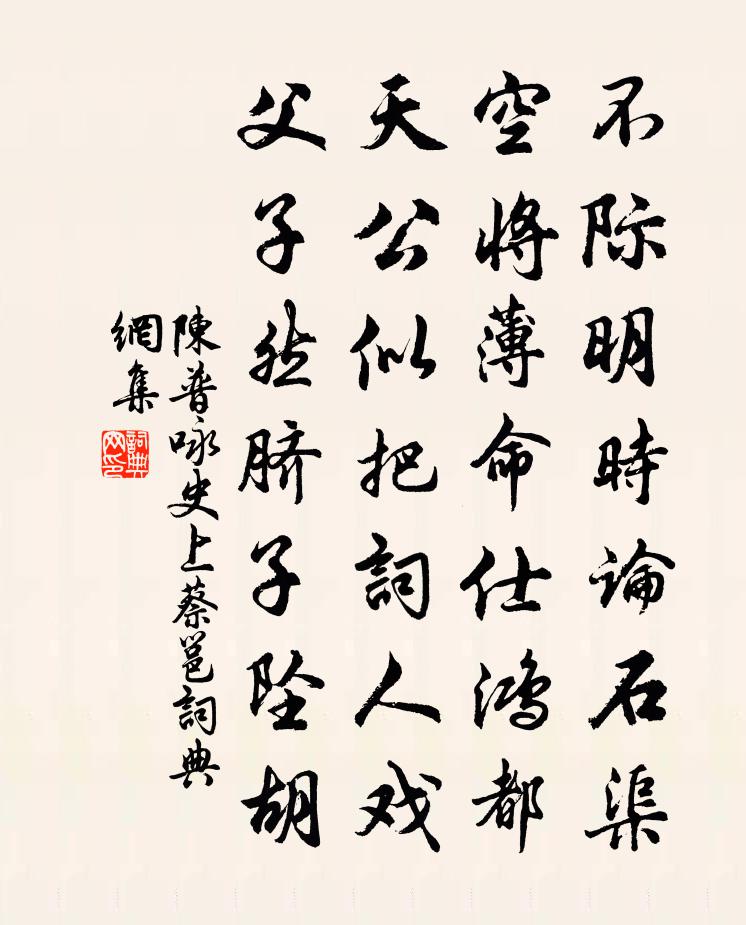 不际明時論石渠
空將薄命仕鸿都
天公似把詞人戏
父子然脐子坠胡
陳普咏史上蔡邕詞典
網集
詞典网印